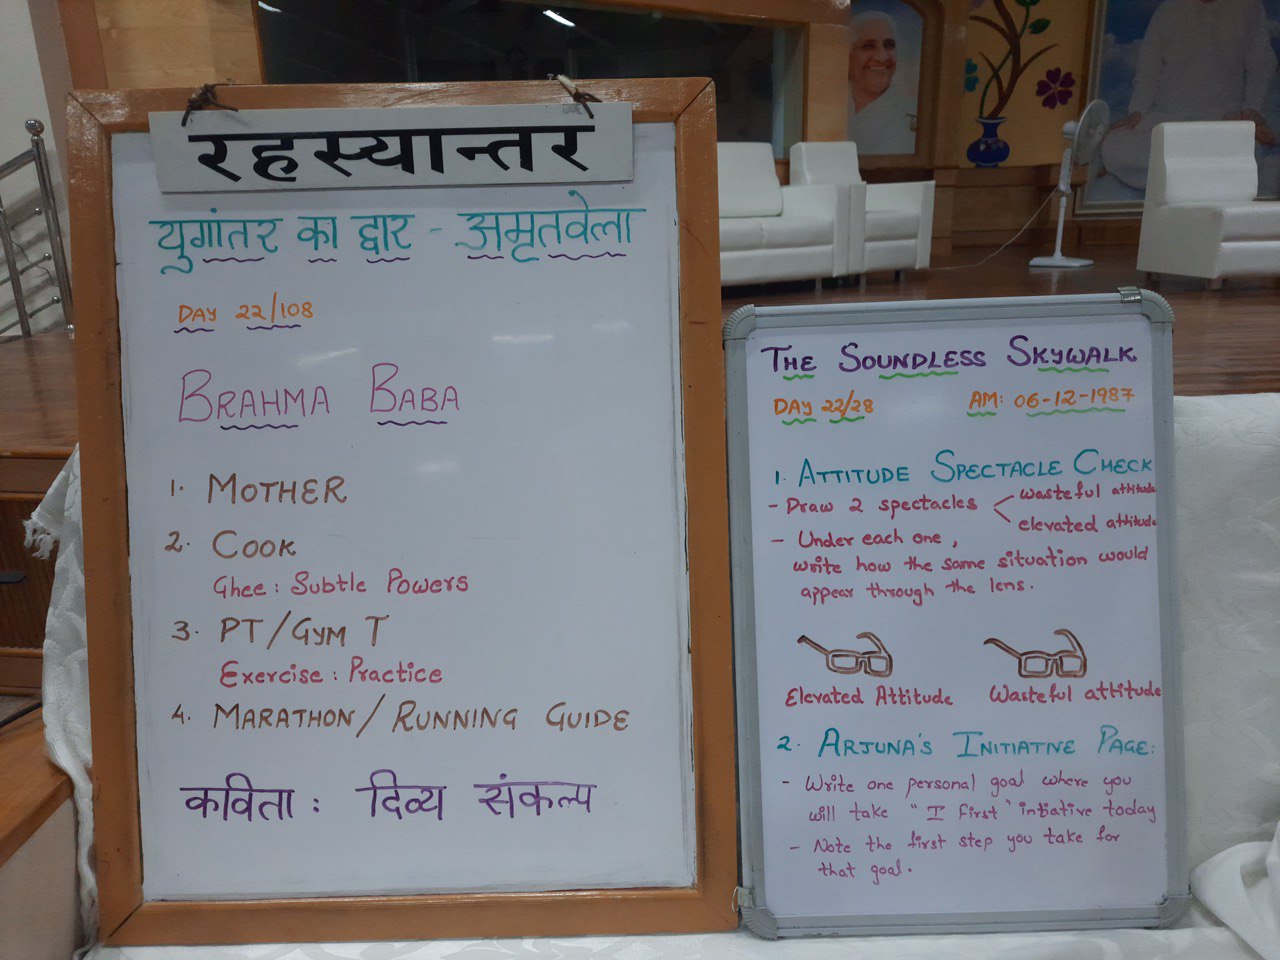 रहस्यान्तर
युगांतर का द्वार - अमृतवेला
DAY 22/108
BRAHMA BABA
1. MOTHER
2. COOK
Ghee : Subtle Powers
3. PT/GYM T
Exercise : Practice
4. MARATHON/RUNNING GUIDE
कविता : दिव्य संकल्प
THE SOUNDLESS SKYWALK
DAY 22/28 AM: 06-12-1987
1. ATTITUDE SPECTACLE CHECK
- Draw 2 spectacles < wasteful attitude
elevated attitude
- Under each one,
write how the same situation would
appear through the lens.
Elevated Attitude Wasteful attitude
2. ARJUNA'S INITIATIVE PAGE:
- Write one personal goal where you
will take "I first" intiative today
- Note the first step you take for
that goal.